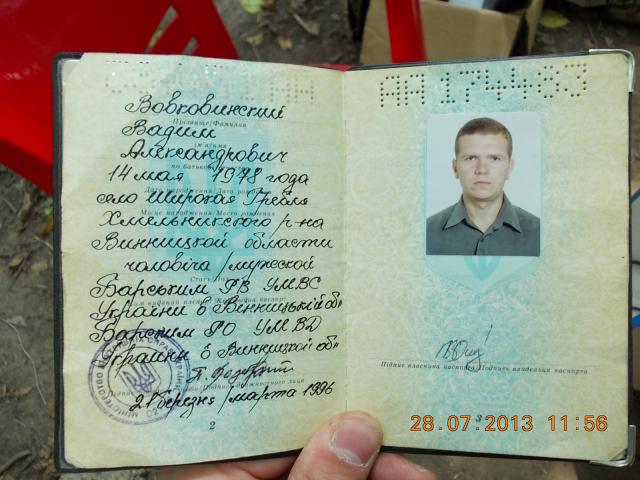 АА 174483
Вовковинский
Прізвище/Фамилия
Вадим
ім'я/имя
Александрович
по батькові
14 мая 1978 года
Дата народження/Дата рождения
село Широкая Гребля
Місце народження/Место рождения
Хмельникского р-на
Винницкой области
чоловіча/мужской
Стать/Пол
Барським РВ УМВС
України в Вінницькій об
Барским РО УМВД
Украины в Винницкой об
21 березня/марта 1996
2
Підпис власника паспорта/Подпись владельца паспорта
3
28.07.2013 11:56